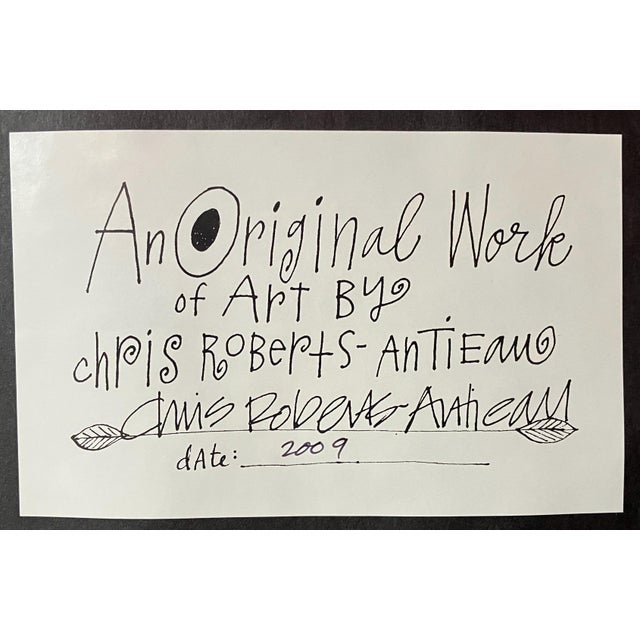 An Original Work
of Art By
chris Roberts-Antieau
Chris Roberts-Antieau
dAte: 2009